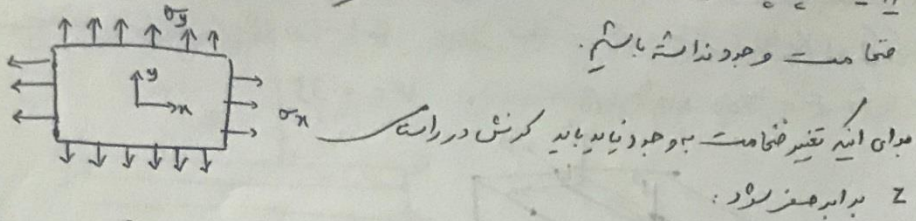 σy
ضخامت وجود نداشته باشیم.
y
x
σx
برای اینکه تغییر ضخامت به وجود نیاید باید کرنش در راستای
z برابر صفر شود: